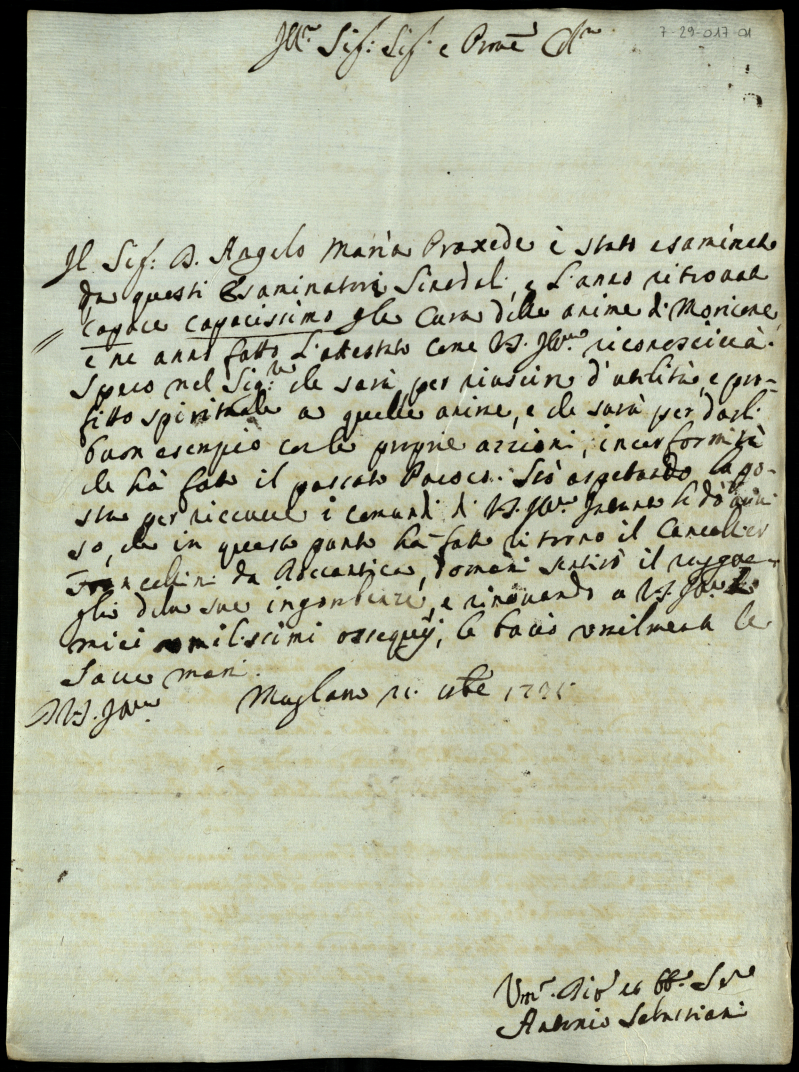 7-29-017-01
Ill.mo Sig: Sig: e Prone
Il Sig: D. Angelo Maria Praxede è stato esaminato
da questi Esaminatori Sinodali, e l'anno ritrovato
capace capacissimo Cura delle anime di Moricone
e ne anno fatto l'attestato come V.S. Ill.ma riconoscerà.
Spero nel Sig.re che sarà per riuscire d'utilità, e pro-
fitto spirituale a quelle anime, e che sarà per darli
buon esempio con le proprie azzioni, in conformità
che hà fatto il passato Paroco. Stò aspettando la po-
sta per ricevere i comandi di V.S. Ill.ma li dò avvi
so, che in questo punto hà fatto ritorno il Cancelliere
Francellini da Roccantica, domani sentirò il
delle sue incombenze, e rinovando a V.S. Ill.ma
miei umilissimi ossequij, le bacio umilmente le
Sacre mani.
D V.S. Ill.ma Magliano
Um.o Div.o et Obb.o Se.re
Antonio Sebastiani